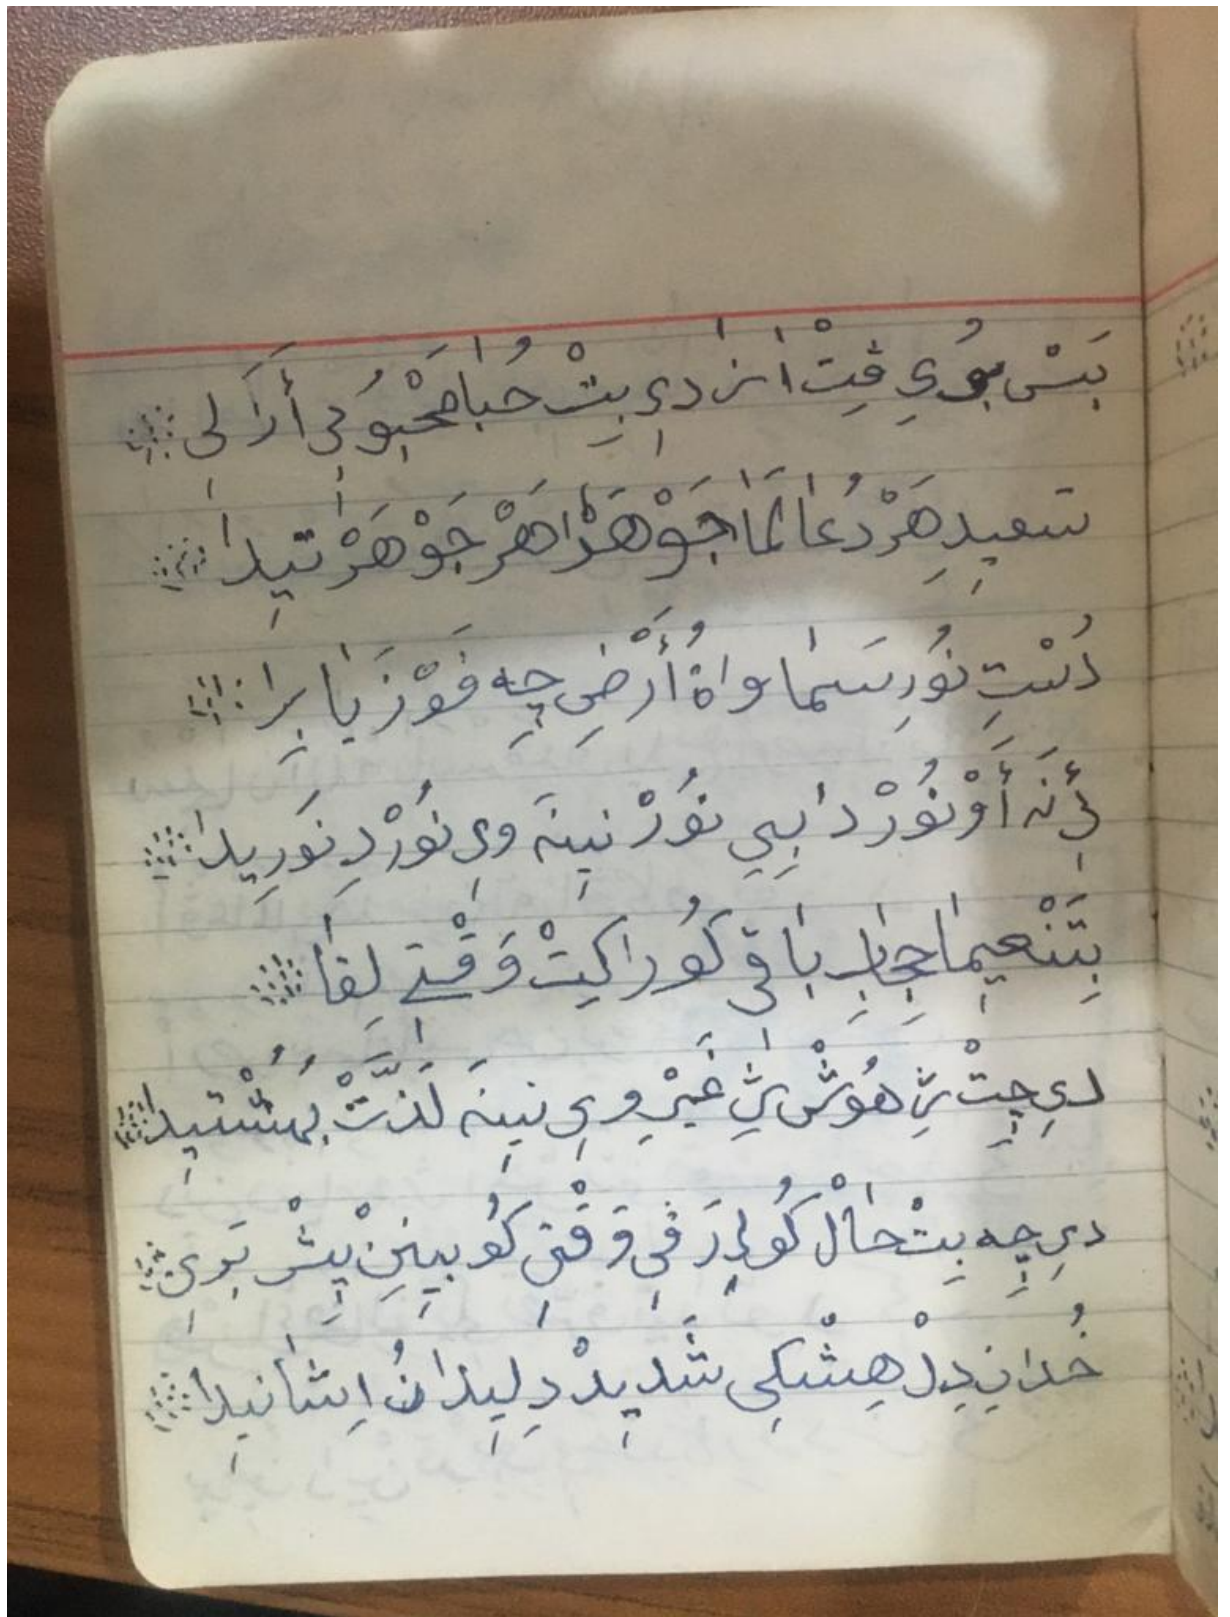 بَسْ بوُيِ ڤِتْ اىٰ دىِ بِتْ حُبا مَحْبُوُبىِ أَزَلىِ
سَعيدِ هَرْ دُعالَما جَوْهَرا هَرْ جَوْهَرْ تێدا
دُسْتِ نوُرِ سَماواةُ أَرْضىِ چِه فَوْزَ يا بِرا
لأِنَه أَوْ نوُرْ دابىِ نوُرْ نينَه وىِ نوُرْ دِ نوَريدا
بِتَنْعيما حِجابِ باقى كوُرا كِتْ وَقْتىِ لِقا
دىِ چِتْ ژِ هوُشْ ژِ غَيْرِ وىِ نينَه لَذَّتْ بِهُشْتيدا
دىِ چِه بِتْ حالْ كوُ لِدَرَ ڤىِ وَقْتىِ كوُ بينِنْ پِشْ پَرىِ
خُدانِ دِلْ هِشْكىِ شَديدْ دِليدا نُ اِيشانيدا